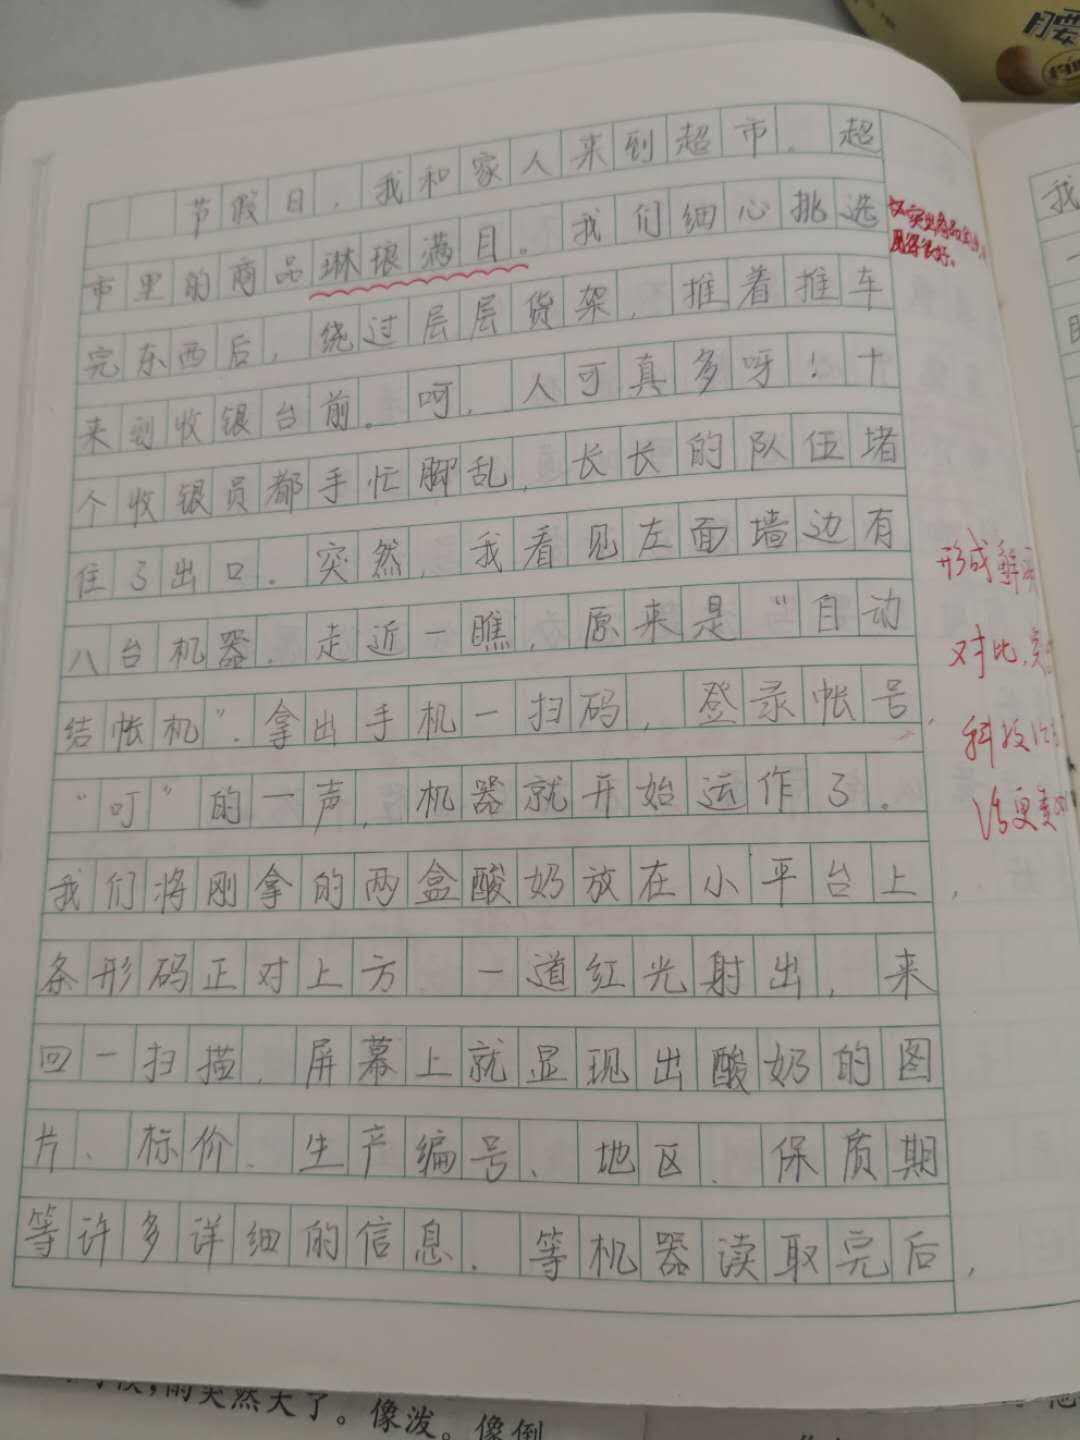 节假日，我和家人来到超市。超
市里的商品琳琅满目。我们细心挑选
完东西后，绕过层层货架，推着推车
来到收银台前。呵，人可真多呀！十
个收银员都手忙脚乱，长长的队伍堵
住了出口。突然，我看见左面墙边有
八台机器。走近一瞧，原来是“自动
结帐机”。拿出手机一扫码，登录帐号，
“叮”的一声，机器就开始运作了。
我们将刚拿的两盒酸奶放在小平台上，
条形码正对上方 一道红光射出，来
回一扫描，屏幕上就显现出酸奶的图
片、标价、生产编号、地区、保质期
等许多详细的信息。等机器读取完后，
突出商品
用得很好。
形成鲜
对比，突
科技
活更美
我
腰
突然大了。像泼。像倒